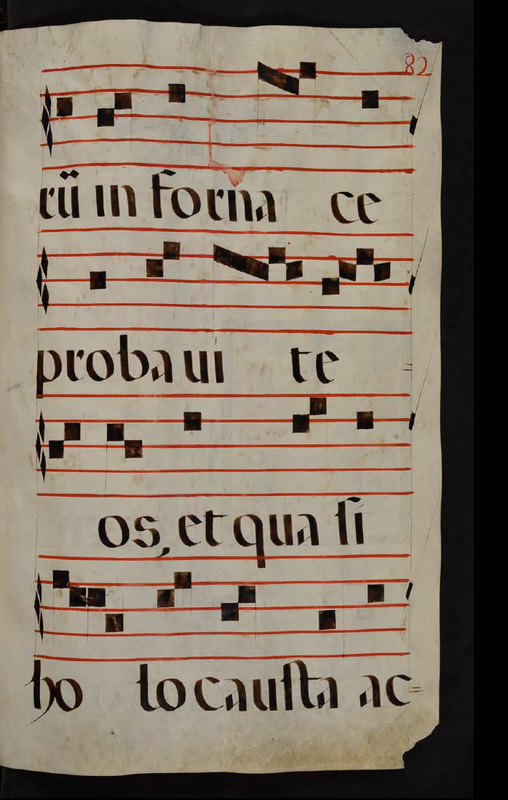 82
rũ in forna ce
probaui te
os, et qua ſi
ho locauſta ac=